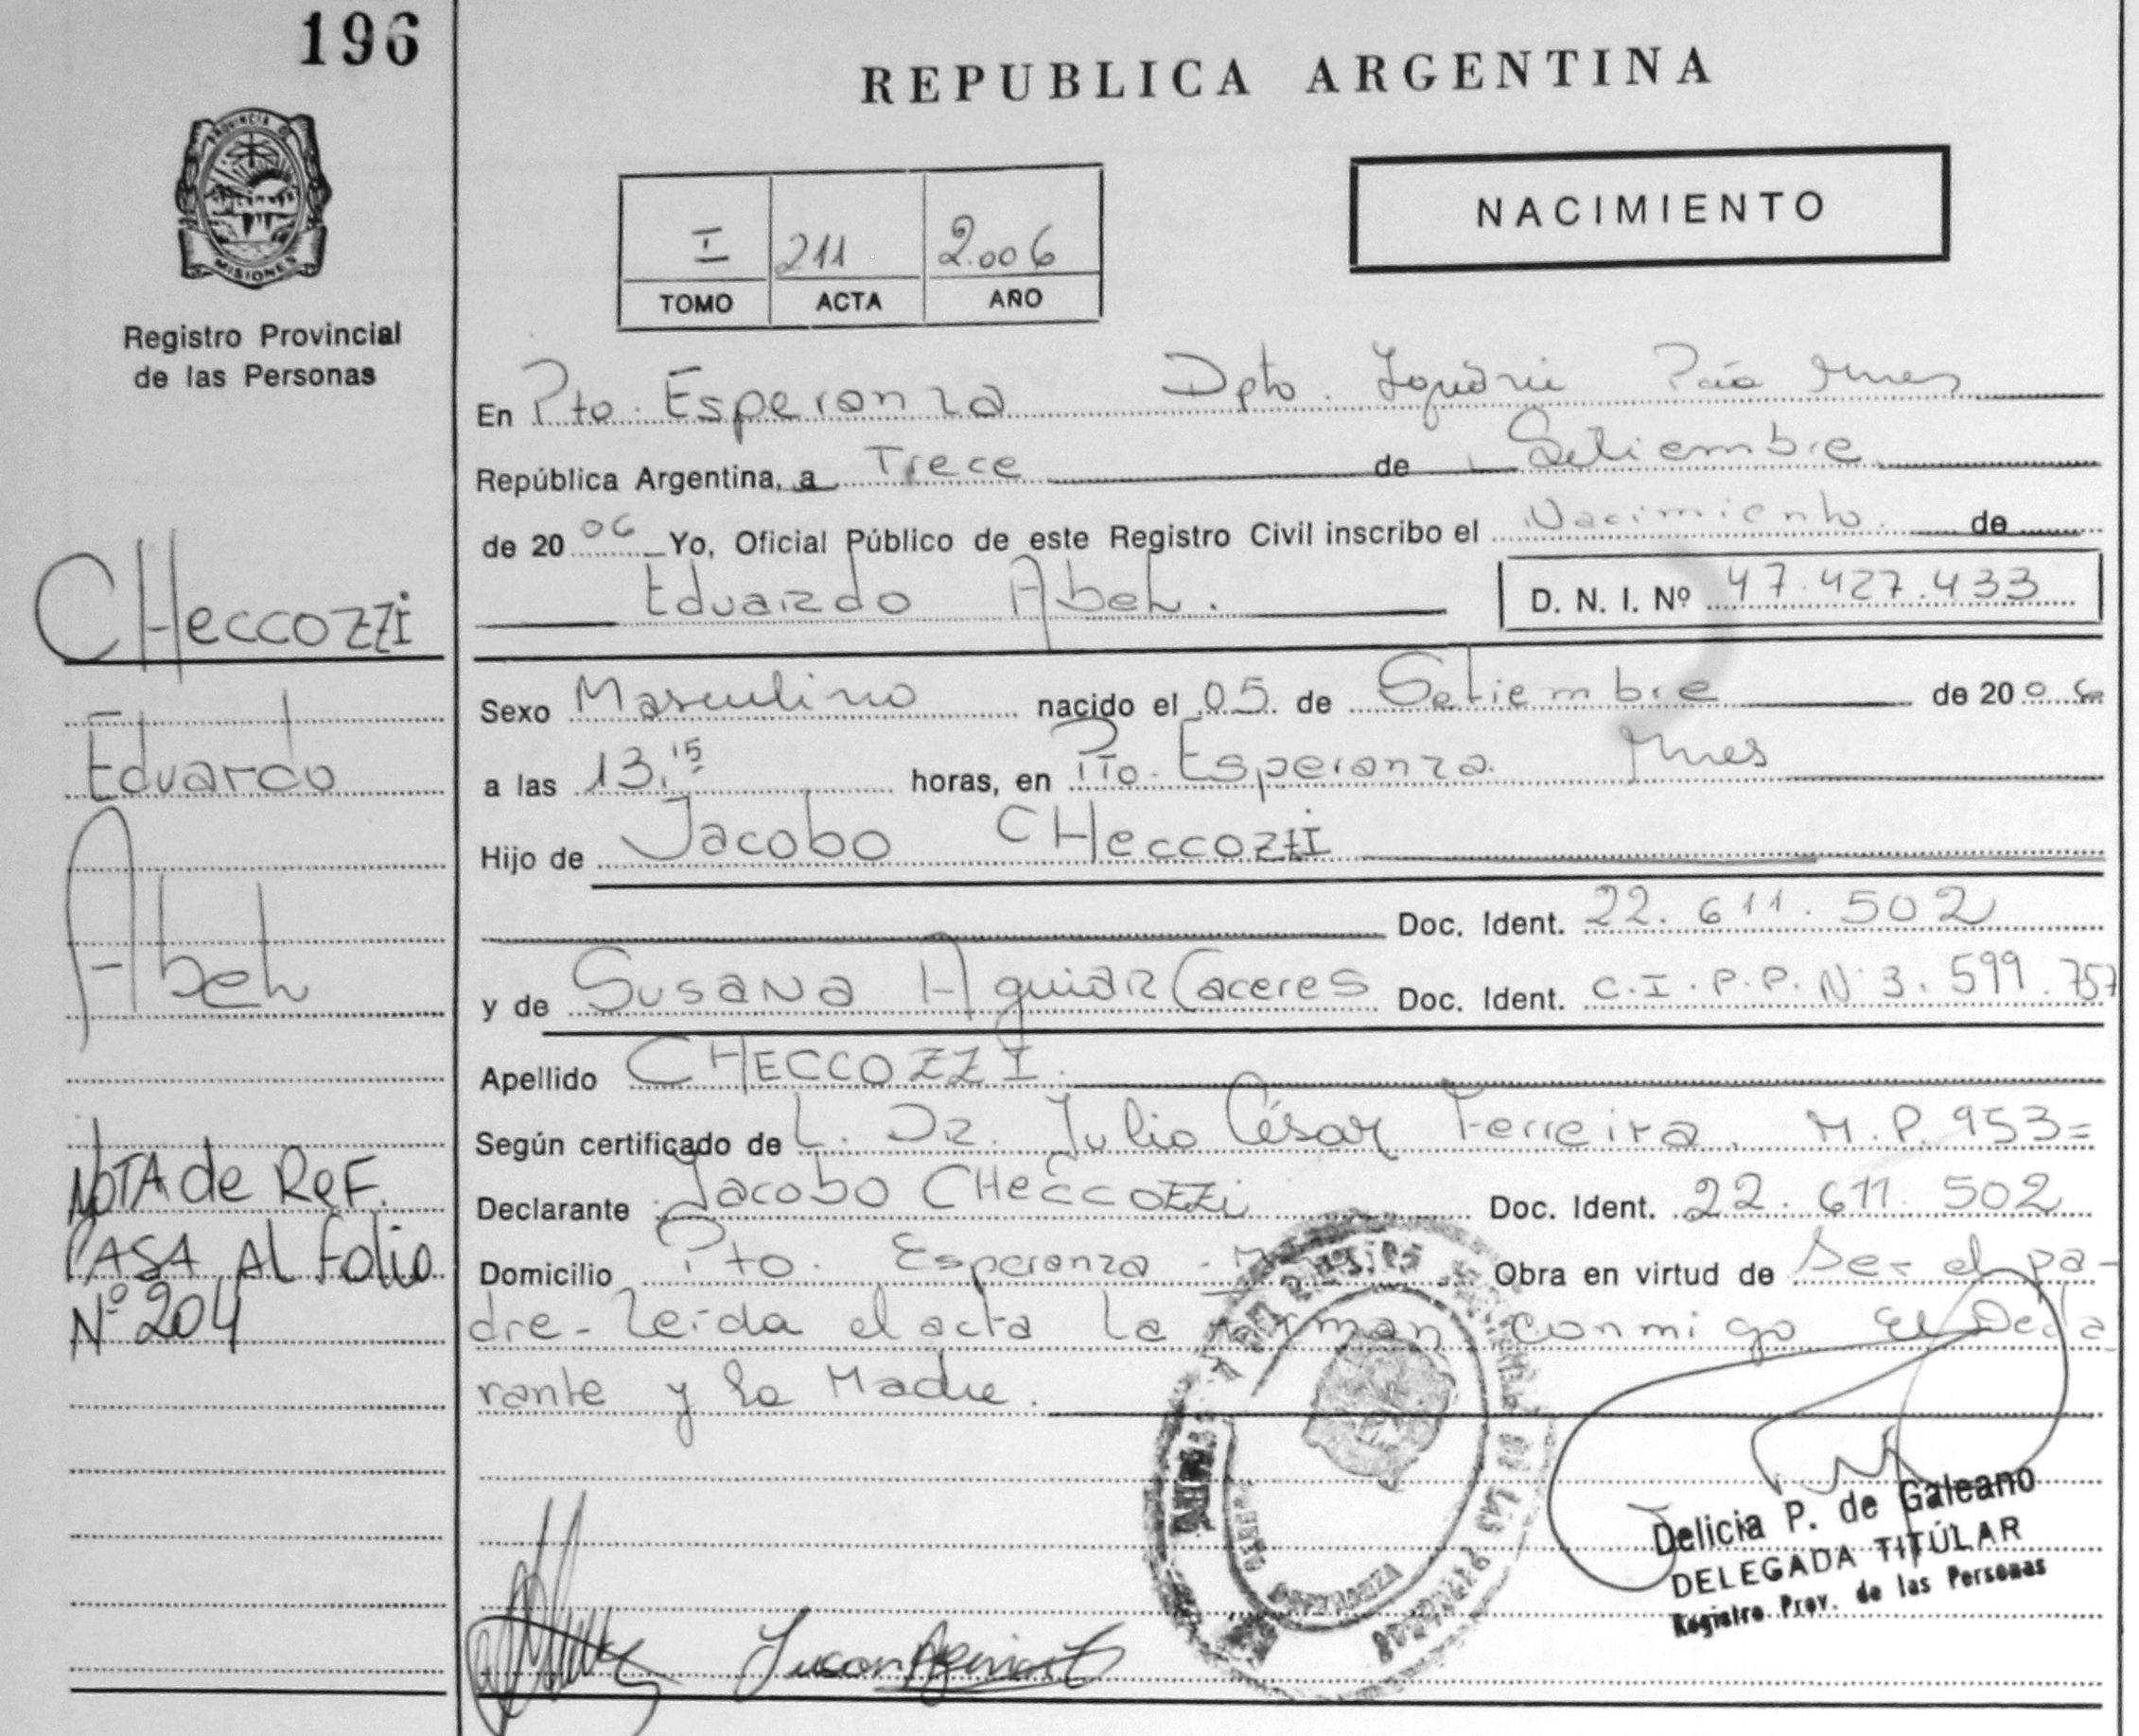 196
REPUBLICA ARGENTINA
PROVINCIA DE
MISIONES
Registro Provincial
de las Personas
NACIMIENTO
I 211 2.006
TOMO ACTA AÑO
En Pto. Esperanza Dpto. Iguazú Pcia Mnes
República Argentina, a Trece de Setiembre
de 20 06 Yo, Oficial Público de este Registro Civil inscribo el Nacimiento de
Eduardo Abel.
D. N. I. Nº 47.427.433
CHeccozzi
Eduardo
Abel
Sexo Masculino nacido el 05 de Setiembre de 20 06
a las 13.15 horas, en Pto. Esperanza Mnes
Hijo de Jacobo CHeccozzi
Doc. Ident. 22.611.502
y de Susana Aguiar Caceres Doc. Ident. C.I.P.P. Nº 3.599.757
Apellido CHECCOZZI.
Según certificado de L. Dr. Julio César Ferreira. M.P. 953=
Declarante Jacobo CHeccozzi Doc. Ident. 22.611.502
Domicilio Pto. Esperanza - Obra en virtud de Ser el pa-
dre- Leída el acta la firman conmigo el Decla
rante y la Madre.
NOTA de ReF.
PASA Al Folio
Nº 204
DE LAS PERSONAS
ESPERANZA
Delicia P. de Galeano
DELEGADA TITULAR
Registro Prov. de las Personas